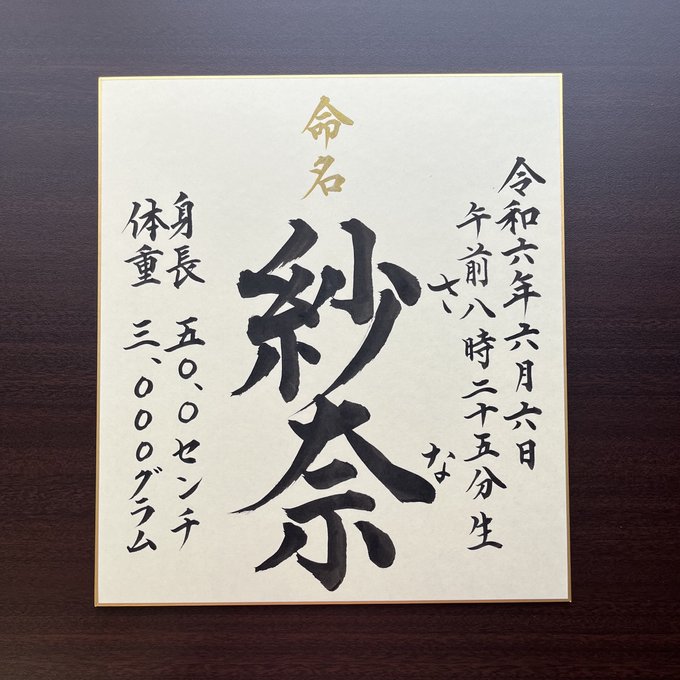 命名
令和六年六月六日
午前八時二十五分生
さな
紗奈
身長 五〇、〇センチ
体重 三、〇〇〇グラム